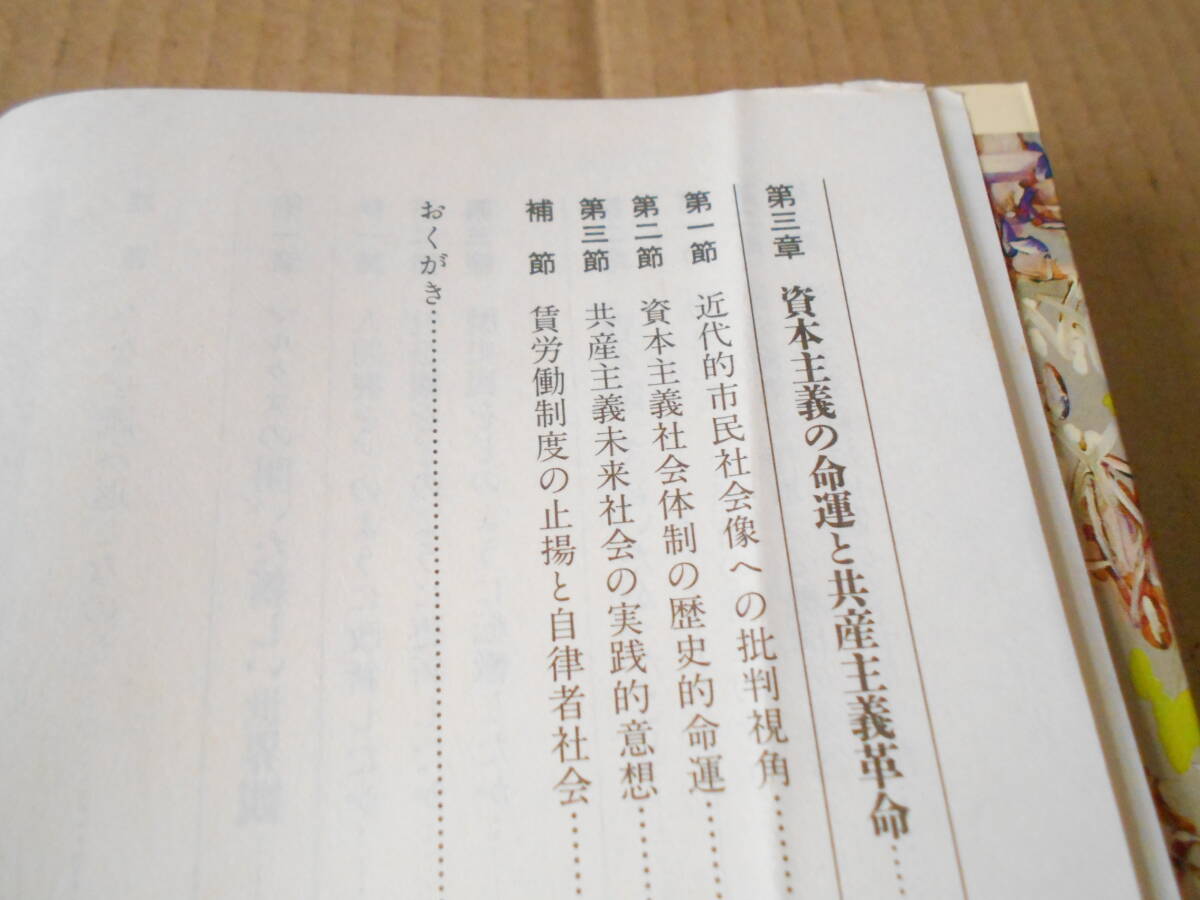 第三章 資本主義の命運と共産主義革命……
第一節 近代的市民社会像への批判視角……
第二節 資本主義社会体制の歴史的命運……
第三節 共産主義未来社会の実践的意想……
補節 賃労働制度の止揚と自律者社会……
おくがき……